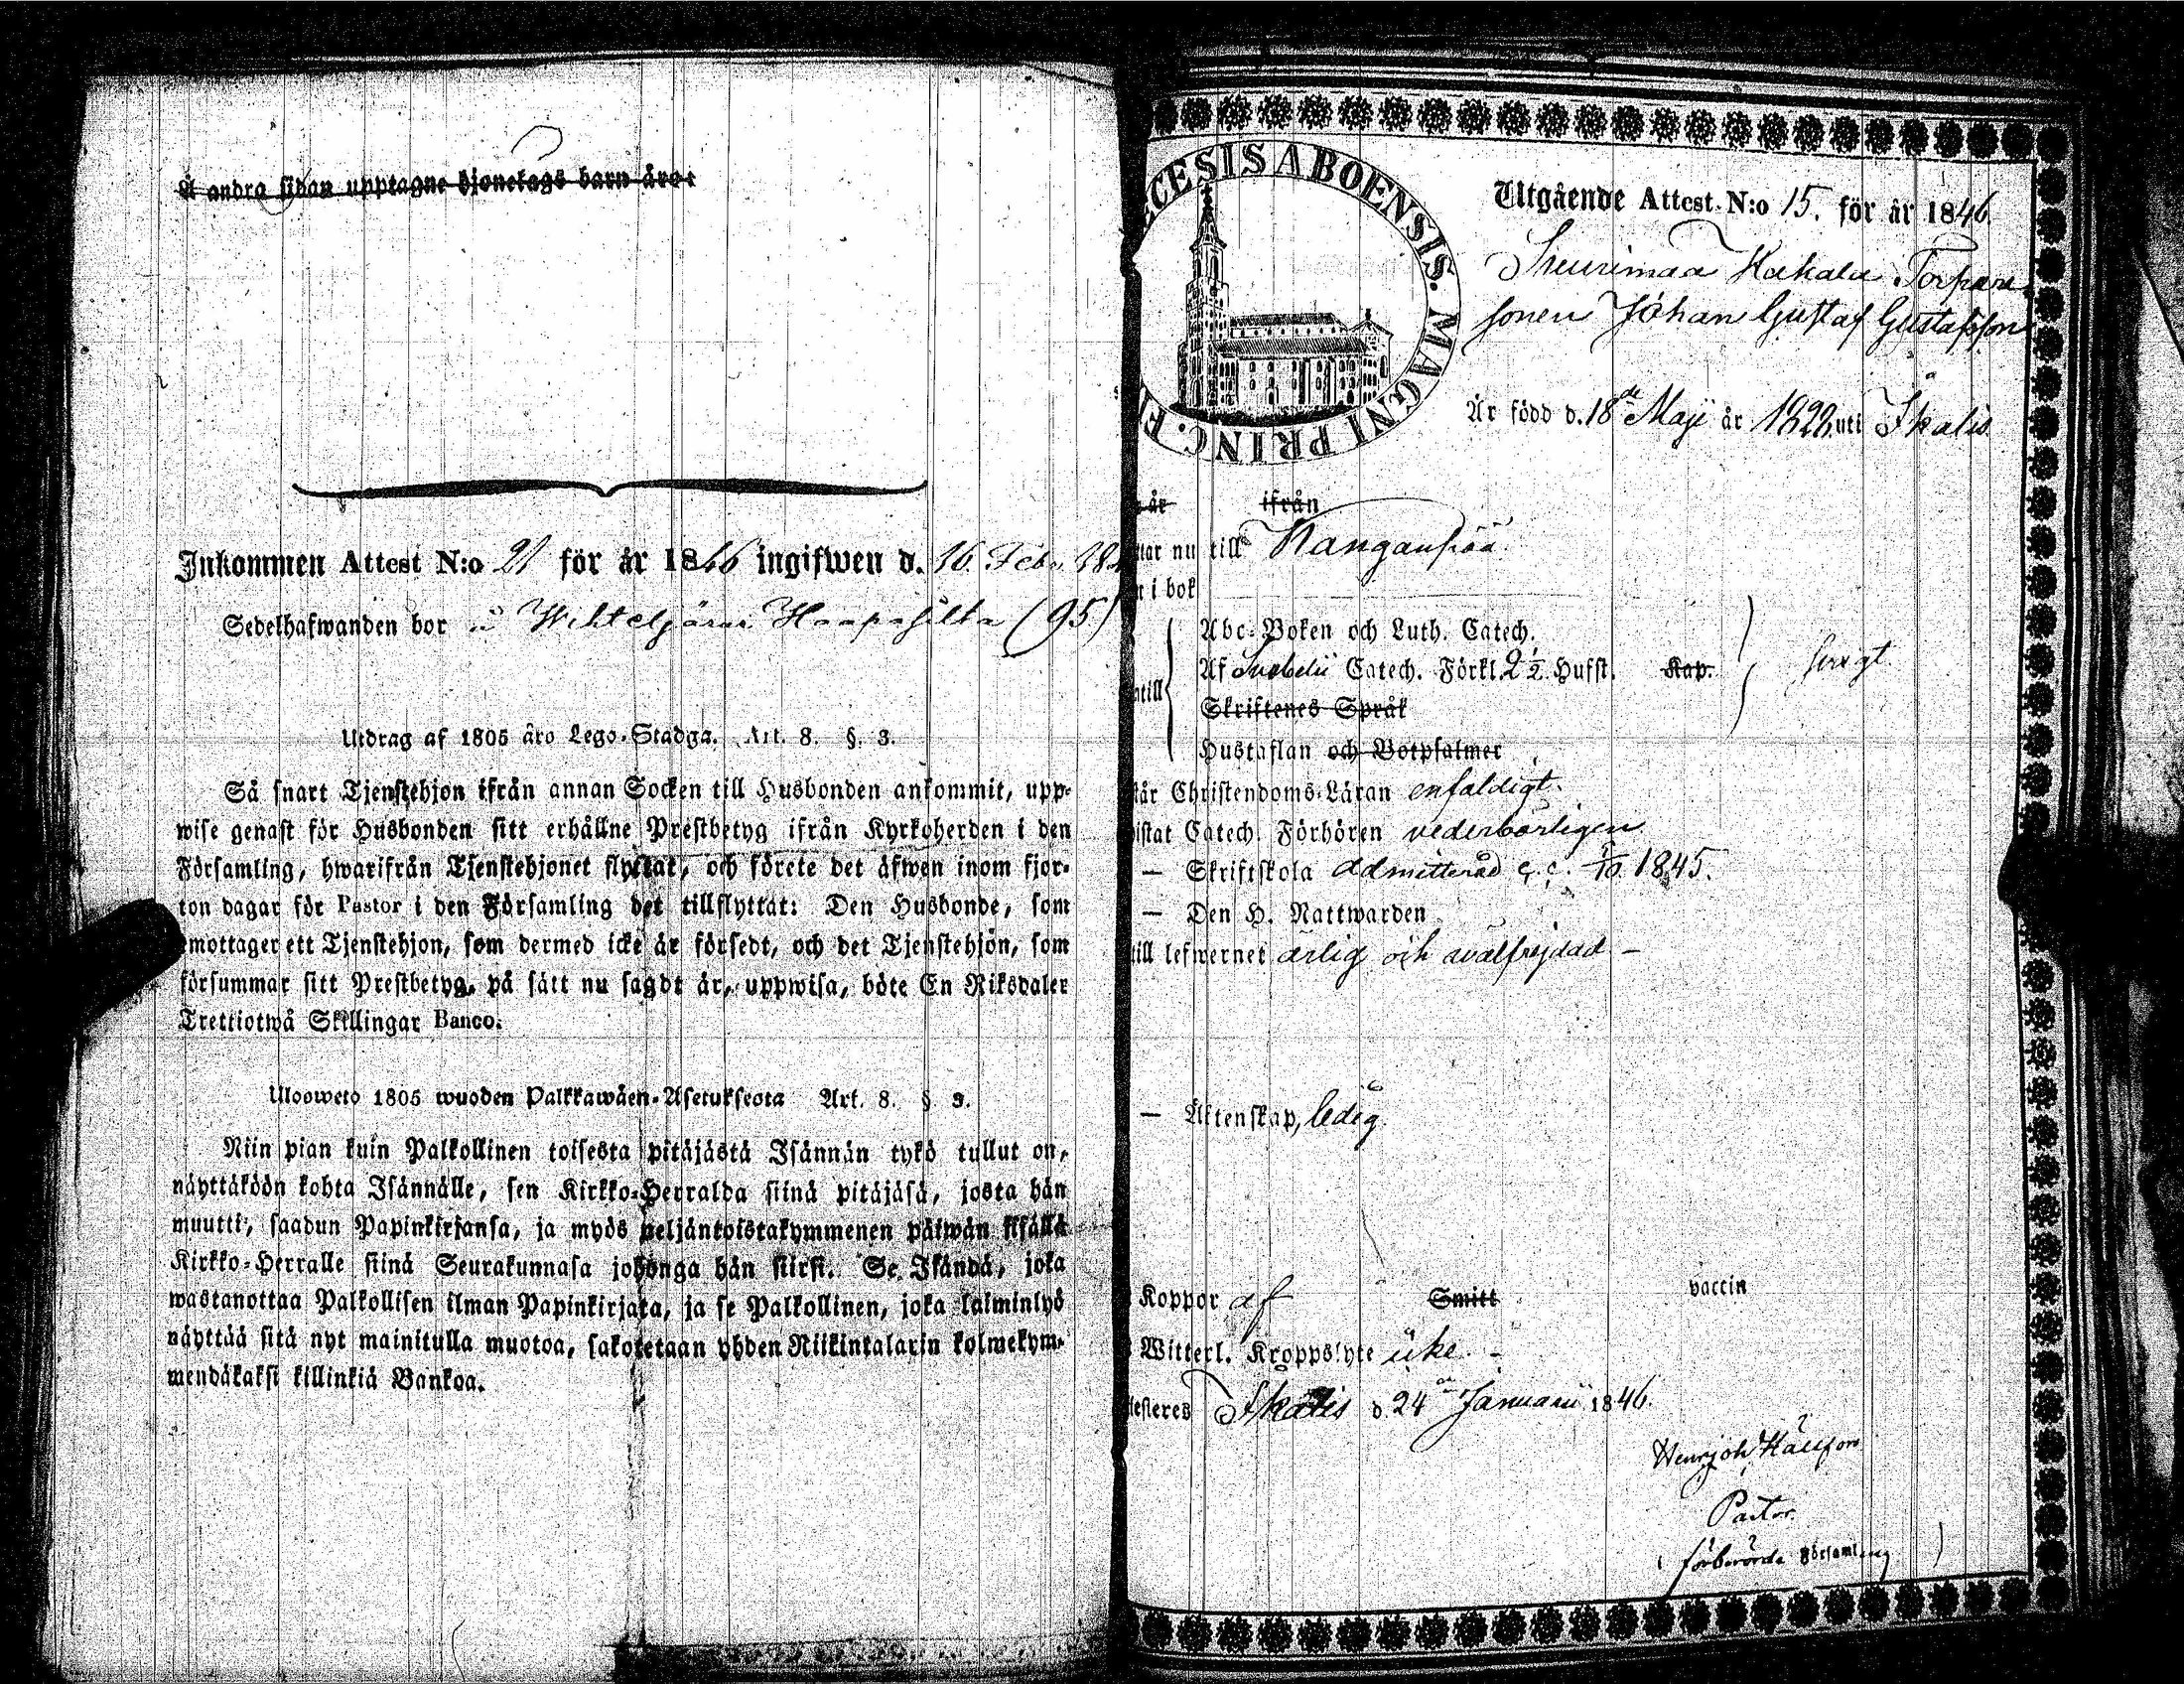 Å andra sidan upptagne hjonelags barn äro:
Inkommen Attest N:o 21 för år 1846 ingifwen d. 16. Febr. 18
Sedelhafwanden bor (95)
Utdrag af 1805 års Lego-Stadga. Art. 8. §. 3.
Så snart Tjenstehjon ifrån annan Socken till Husbonden ankommit, upp-
wise genast för Husbonden sitt erhållne Prestbetyg ifrån Kyrkoherden i den
Församling, hwarifrån Tjenstehjonet flyttat, och förete det äfwen inom fjor-
ton dagar för Pastor i den Församling det tillflyttat: Den Husbonde, som
emottager ett Tjenstehjon, som dermed icke är försedt, och det Tjenstehjon, som
försummar sitt Prestbetyg, på sätt nu sagdt är, uppwisa, böte En Riksdaler
Trettiotwå Skillingar Banco.
Ulosweto 1805 wuoden Palkkawäen-Asetuksesta Art. 8. § 3.
Niin pian kuin Palkollinen toisesta pitäjästä Isännän tykö tullut on,
näyttäköön kohta Isännälle, sen Kirkko-Herralda siinä pitäjäsä, josta hän
muutti, saadun Papinkirjansa, ja myös neljäntoistakymmenen päiwän sisällä
Kirkko-Herralle siinä Seurakunnasa johonga hän siirsi. Se Isändä, joka
wastanottaa Palkollisen ilman Papinkirjata, ja se Palkollinen, joka laiminlyö
näyttää sitä nyt mainitulla muotoa, sakotetaan yhden Riikintalarin kolmekym-
mendäkaksi killinkiä Bankoa.
ECESIS ABOENSIS. MAGNI PRINC. F
Utgående Attest. N:o 15. för år 1846.
Kakala Torpare
sonen Johan Gustaf Gustafsson
Är född d. 18de Maji år 1828 uti Ikalis
år ifrån
tar nu till Kanganpää
n i bok
Abc-Boken och Luth. Catech.
Af Svebelii Catech. Förkl. 2 1/2 Hufst. Kap.
ntill
Skriftenes Språk
Hustaflan och Botpsalmer
står Christendoms-Läran enfaldigt.
istat Catech. Förhören vederbörligen
— Skriftskola admitterad 1845.
— Den H. Nattwarden
till lefwernet ärlig och wälfrejdad —
— Äktenskap, ledig
Koppor af Smitt vaccin
Witterl. Kroppslyte icke —
testeres Ikalis d. 24de Januarii 1846.
Pastor
i förberörde Församling